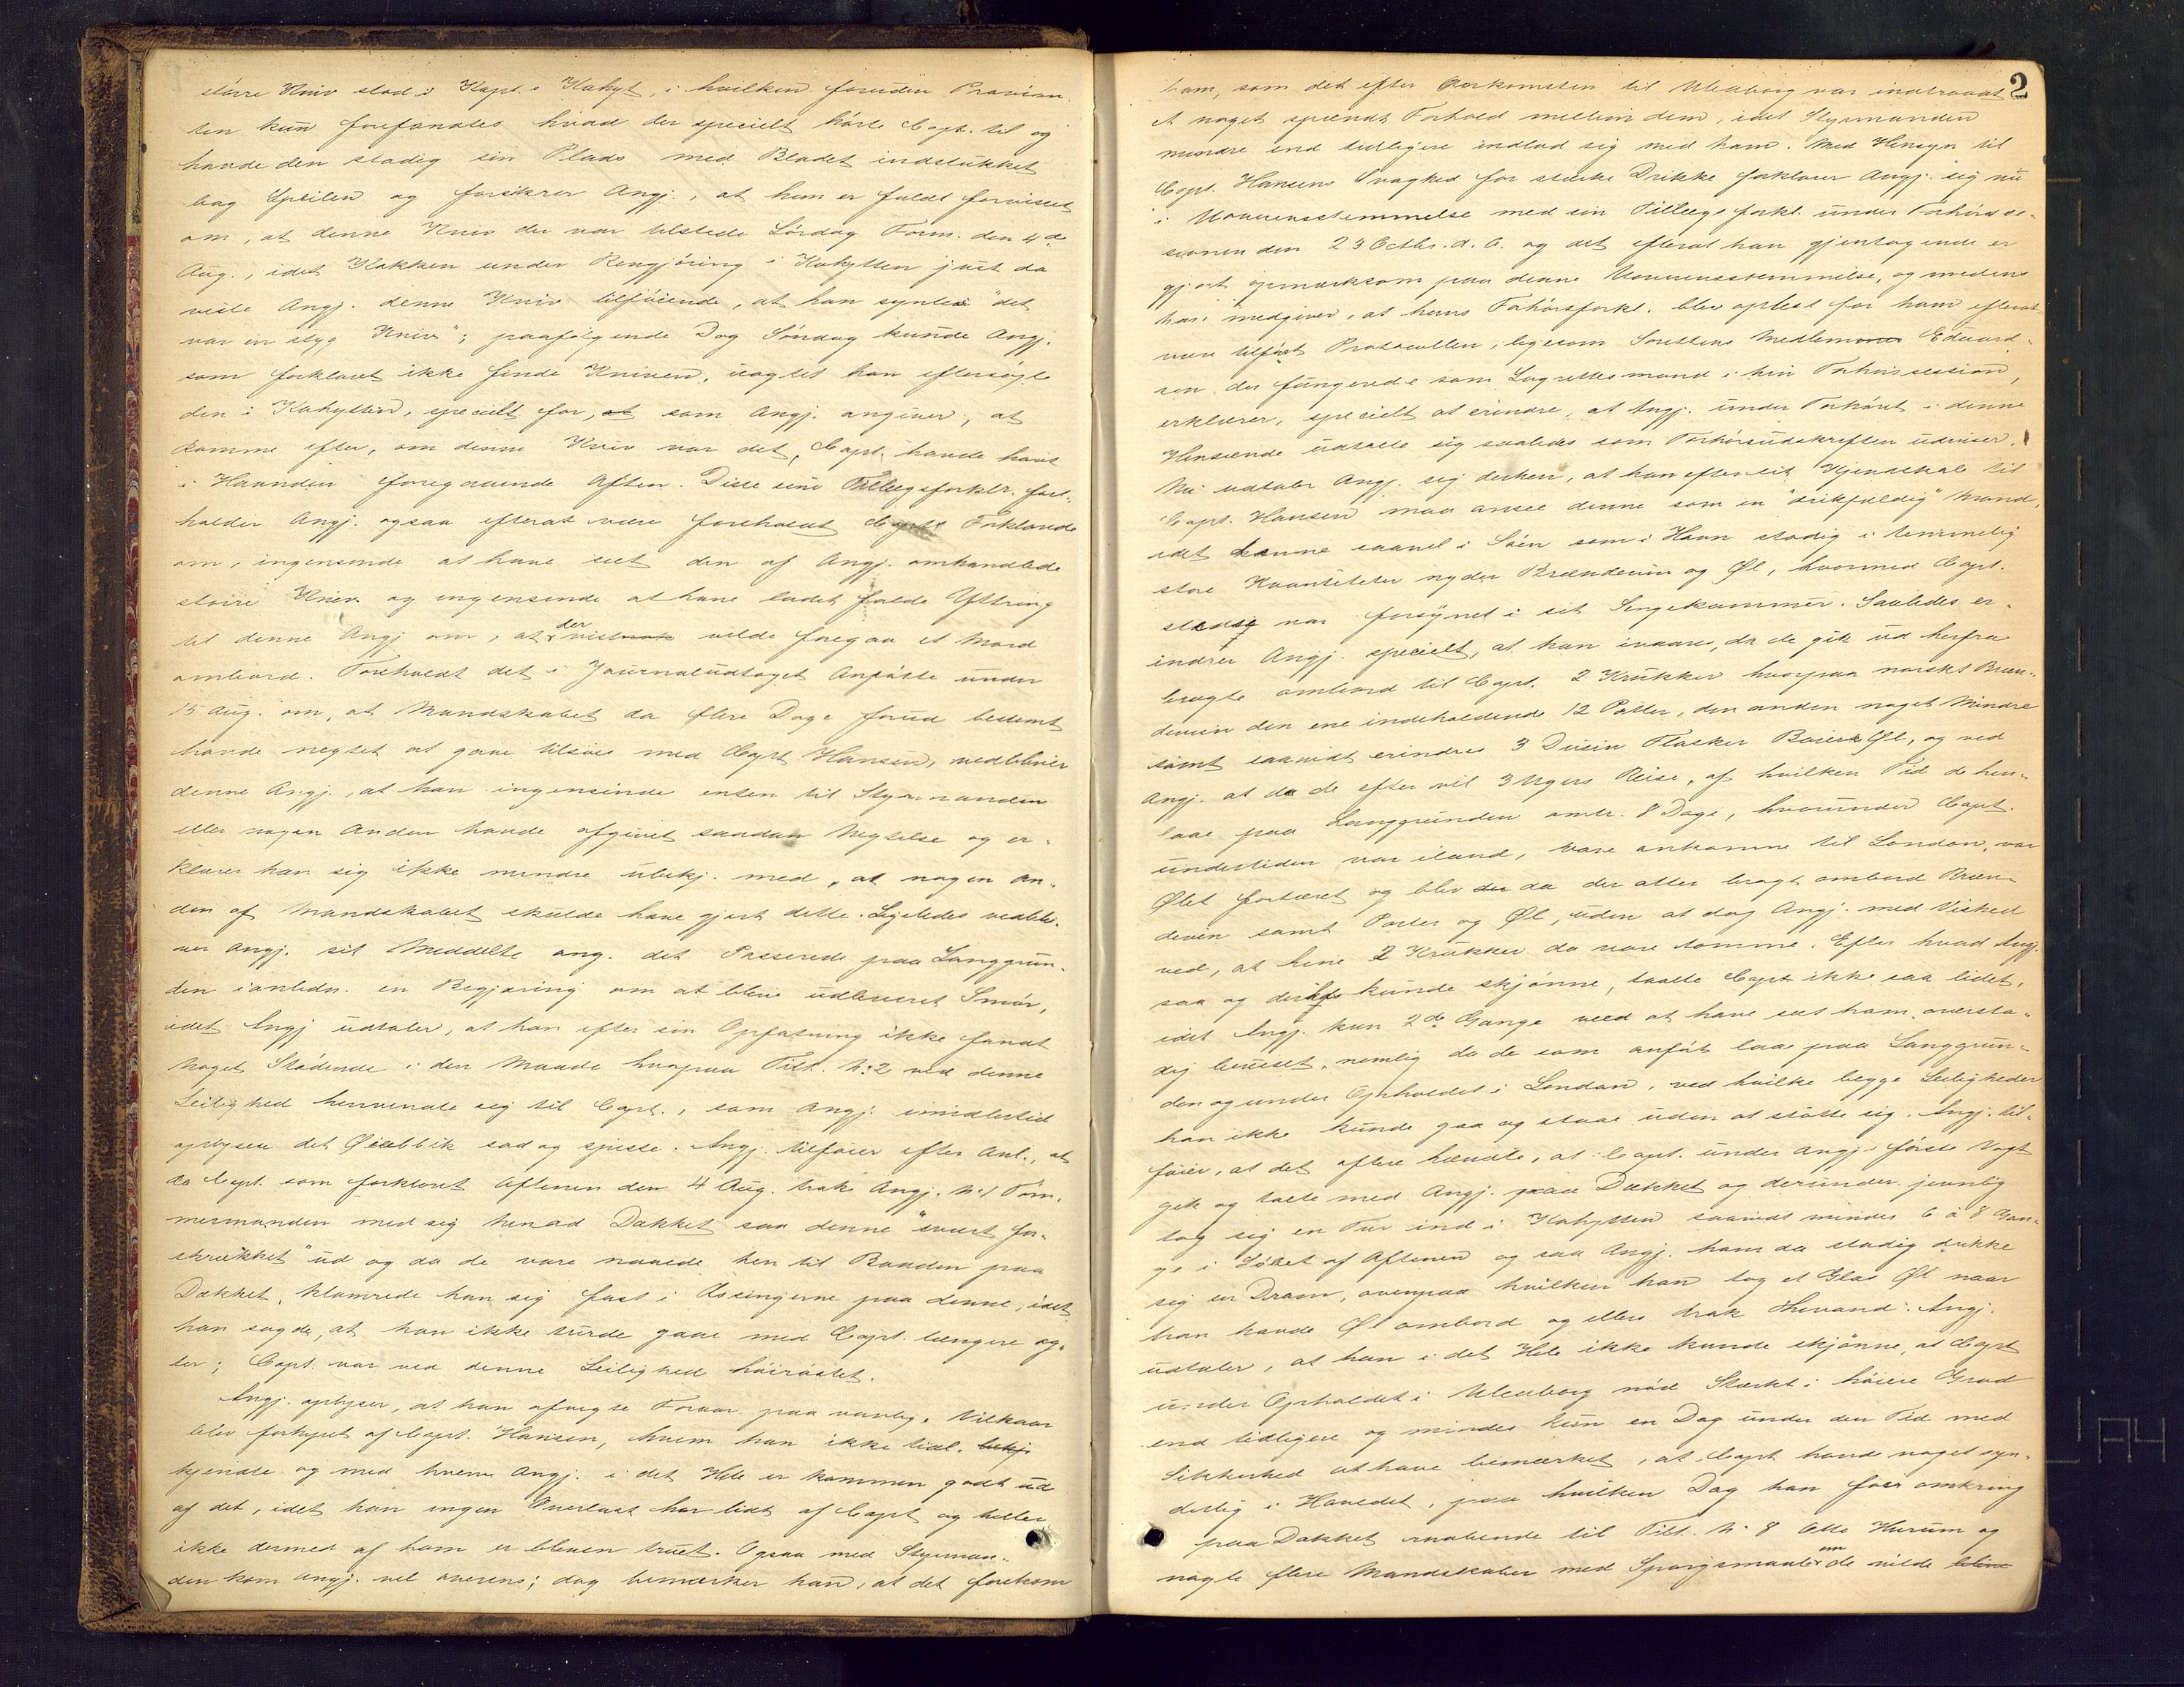 större Kniv stod i Kapt.s Kahyt, i hvilken foruden Provian-
ten kun forefandtes hvad der specielt hörte Capt. til og
havde den stadig sin Plads med Bladet indstukket
bag Speilen og forsikrer Angj., at han er fuldt forvisset
om, at denne Kniv der var tilstede Lördag Form. den 4de
Aug., idet Kokken under Rengjöring i Kahytten just da
viste Angj. denne Kniv tilföiende, at han syntes "det
var en styg Kniv"; paafölgende Dag Söndag kunde Angj.
som forklaret ikke finde Kniven, uagtet han eftersögte
den i Kahytten, specielt for, at som Angj. angiver, at
komme efter, om denne Kniv var det, Capt. havde havt
i Haanden foregaaende Aften. Disse sine Tillægsforklr. fast-
holder Angj. ogsaa efterat være foreholdt Capts Forklarende
om, ingensinde at have seet den af Angj. omhandlede
större Kniv og ingensinde at have ladet falde Yttring
til denne Angj om, at der vistnok vilde foregaa et Mord
ombord. Foreholdt det i Journaludtoget Anförte under
15 Aug. om, at Mandskabet da flere Dage forud bestemt
havde negtet at gaae tilsöes med Capt Hansen, vedbliver
denne Angj., at han ingensinde enten til Styrmanden
eller nogen Anden havde afgivet saadan Negtelse og er-
klærer han sig ikke mindre ubekj. med, at nogen An-
den af Mandskabet skulde have gjort dette. Ligeledes vedbli-
ver Angj. sit Meddelte ang. det Passerede paa Langgrun-
den ianledn. en Begjæring om at blive udleveret Smör,
idet Angj udtaler, at han efter sin Opfatning ikke fandt
Noget Stödende i den Maade hvorpaa Tilt. N: 2 ved denne
Leilighed henvendte sig til Capt., som Angj. imidlertid
oplyser det Øieblik sad og spiste. Angj. tilföier efter Anl., at
da Capt. som forklaret Aftenen den 4 Aug. trak Angj. N: 1 Töm-
mermanden med sig henad Dækket saa denne "svært for-
skrækket" ud og da de vare naaede hen til Baaden paa
Dækket, klamrede han sig fast i Æsingerne paa denne, idet
han sagde, at han ikke turde gaae med Capt. længere ag-
ter; Capt. var ved denne Leilighed höiröstet.
Angj. oplyser, at han afvigte Foraar paa vanlige Vilkaar
blev forhyret af Capt. Hansen, hvem han ikke tidl. bekj
kjendte og med hvem Angj. i det Hele er kommen godt ud
af det, idet han ingen Overlast har lidt af Capt og heller
ikke dermed af ham er bleven truet. Ogsaa med Styrman-
den kom Angj. vel overens; dog bemærker han, at det forekom
2
ham, som det efter Ankomsten til Uleaborg var indtraadt
et noget spændt Forhold mellem dem, idet Styrmanden
mindre end tidligere indlod sig med ham. Med Hensyn til
Capt. Hansens Svaghed for stærke Drikke forklarer Angj. sig nu
i Uoverensstemmelse med sin Tillægsforkl. under Forhörsse-
sionen den 23 Octbr. d. A. og det efterat han gjentagende er
gjort opmærksom paa denne Uoverensstemmelse, og medens
han medgiver, at hans Forhörsforkl. blev oplæst for ham efterat
være tilfört Protocollen, ligesom Sorettens Medlem Edvard-
sen der fungerede som Lagrettesmand i hin Forhörssession,
erklærer, specielt at erindre, at Angj. under Forhöret i denne
Henseende udtalte sig saaledes som Forhörsudskriften udviser.
Nu udtaler Angj. sig derhen, at han efter sit Kjendskab til
Capt. Hansen maa ansee denne som en "drikfældig" Mand,
idet denne saavel i Söen som i Havn stadig i temmelig
store Kvantiteter nyder Brændeviin og Øl, hvormed Capt.
stedse var forsynet i sit Sengekammer. Saaledes er-
indrer Angj. specielt, at han ivaares, da de gik ud herfra
bragte ombord til Capt. 2 Krukker hvorpaa norskt Bræn-
deviin den ene indeholdende 12 Potter, den anden noget Mindre
samt saavidt erindres 3 Dusin Flasker Baiersk Øl, og ved
Angj. at da de efter vel 3 Ugers Reise, af hvilken Tid de hen-
laae paa Langgrunden omtr. 8 Dage, hvorunder Capt.
undertiden var iland, vare ankomne til London, var
Øllet fortæret og blev der da der atter bragt ombord Bræn-
deviin samt Porter og Øl, uden at dog Angj. med Vished
ved, at hine 2 Krukker da vare tomme. Efter hvad Angj.
saa og kunde skjönne, taalte Capt ikke saa lidet,
idet Angj. kun 2de Gange veed at have seet ham oversta-
dig beruset, nemlig da de som anfört laae paa Langgrun-
den og under Opholdet i London, ved hvilke begge Leiligheder
han ikke kunde gaa og staae uden at stötte sig. Angj. til-
föier, at det oftere hændte, at Capt. under Angj.s förste Vagt
gik og talte med Angj. paa Dækket og derunder jevnlig
tog sig en Tur ind i Kahytten saavidt mindes 6 à 8 Gan-
ge i Löbet af Aftenen og saa Angj. ham da stadig drikke
sig en Dram, ovenpaa hvilken han tog et Glas Øl naar
han havde Øl ombord og ellers drak Thevand. Angj.
udtaler, at han i det Hele ikke kunde skjönne, at Capt
under Opholdet i Uleaborg nöd Stærkt i höiere Grad
end tidligere og mindes kun en Dag under den Tid med
Sikkerhed at have bemærket, at Capt havde noget syn-
derlig i Hovedet, paa hvilken Dag han foer omkring
paa Dækket raabende til Tilt. N: 8 Otto Hurum og
nogle flere Mandskaber med Spörgsmaalet om de vilde blive